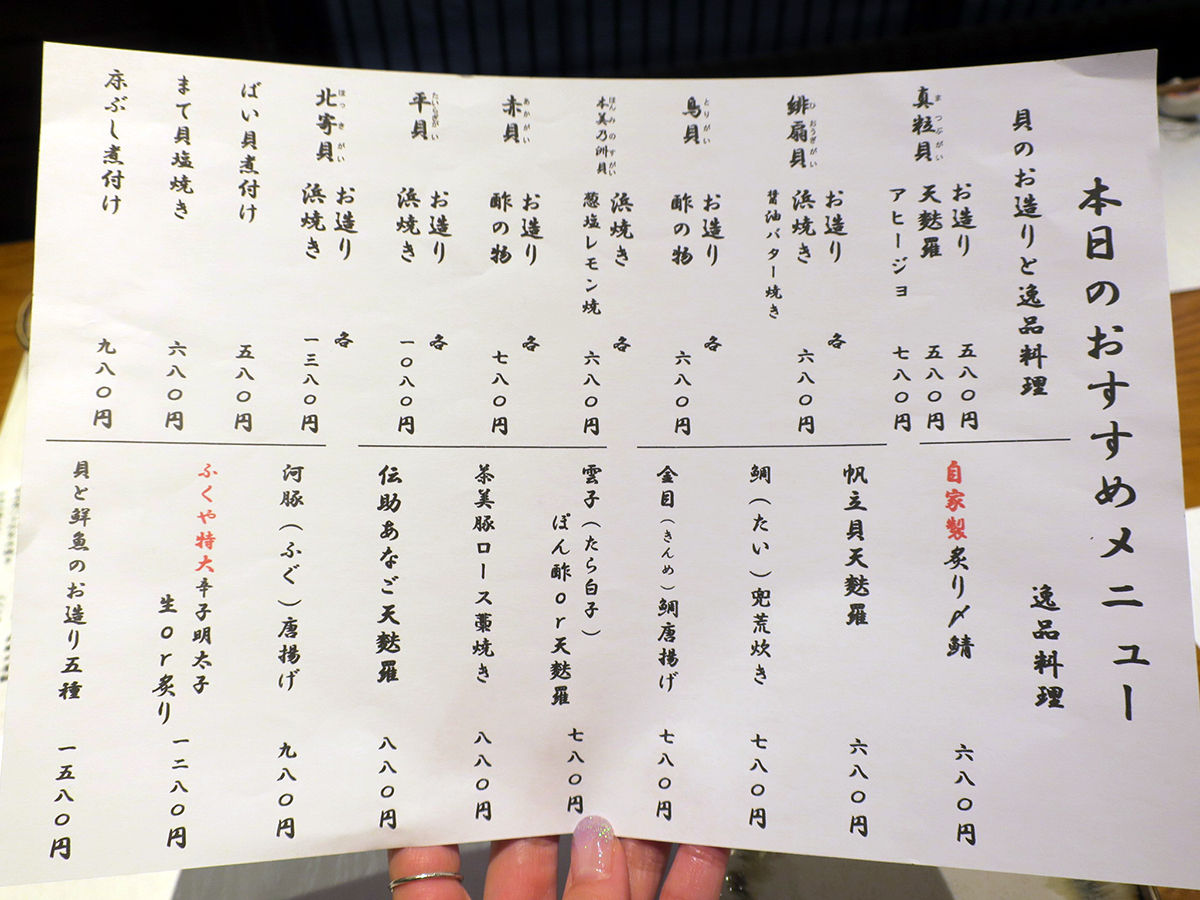 本日のおすすめメニュー
貝のお造りと逸品料理
真粒貝
まつぶがい
お造り 五八〇円
天麩羅 五八〇円
アヒージョ 七八〇円
緋扇貝
ひおうぎがい
お造り
浜焼き
醤油バター焼き
各
六八〇円
鳥貝
とりがい
お造り
酢の物
各
六八〇円
本美乃洲貝
ほんみのすがい
浜焼き
葱塩レモン焼
各
六八〇円
赤貝
あかがい
お造り
酢の物
各
七八〇円
平貝
たいらぎがい
お造り
浜焼き
各
一〇八〇円
北寄貝
ほっきがい
お造り
浜焼き
各
一三八〇円
ばい貝煮付け 五八〇円
まて貝塩焼き 六八〇円
床ぶし煮付け 九八〇円
逸品料理
自家製炙り〆鯖 六八〇円
帆立貝天麩羅 六八〇円
鯛(たい)兜荒炊き 七八〇円
金目(きんめ)鯛唐揚げ 七八〇円
雲子(たら白子)
ぽん酢or天麩羅 七八〇円
茶美豚ロース藁焼き 八八〇円
伝助あなご天麩羅 八八〇円
河豚(ふぐ)唐揚げ 九八〇円
ふくや特大辛子明太子
生or炙り 一二八〇円
貝と鮮魚のお造り五種 一五八〇円